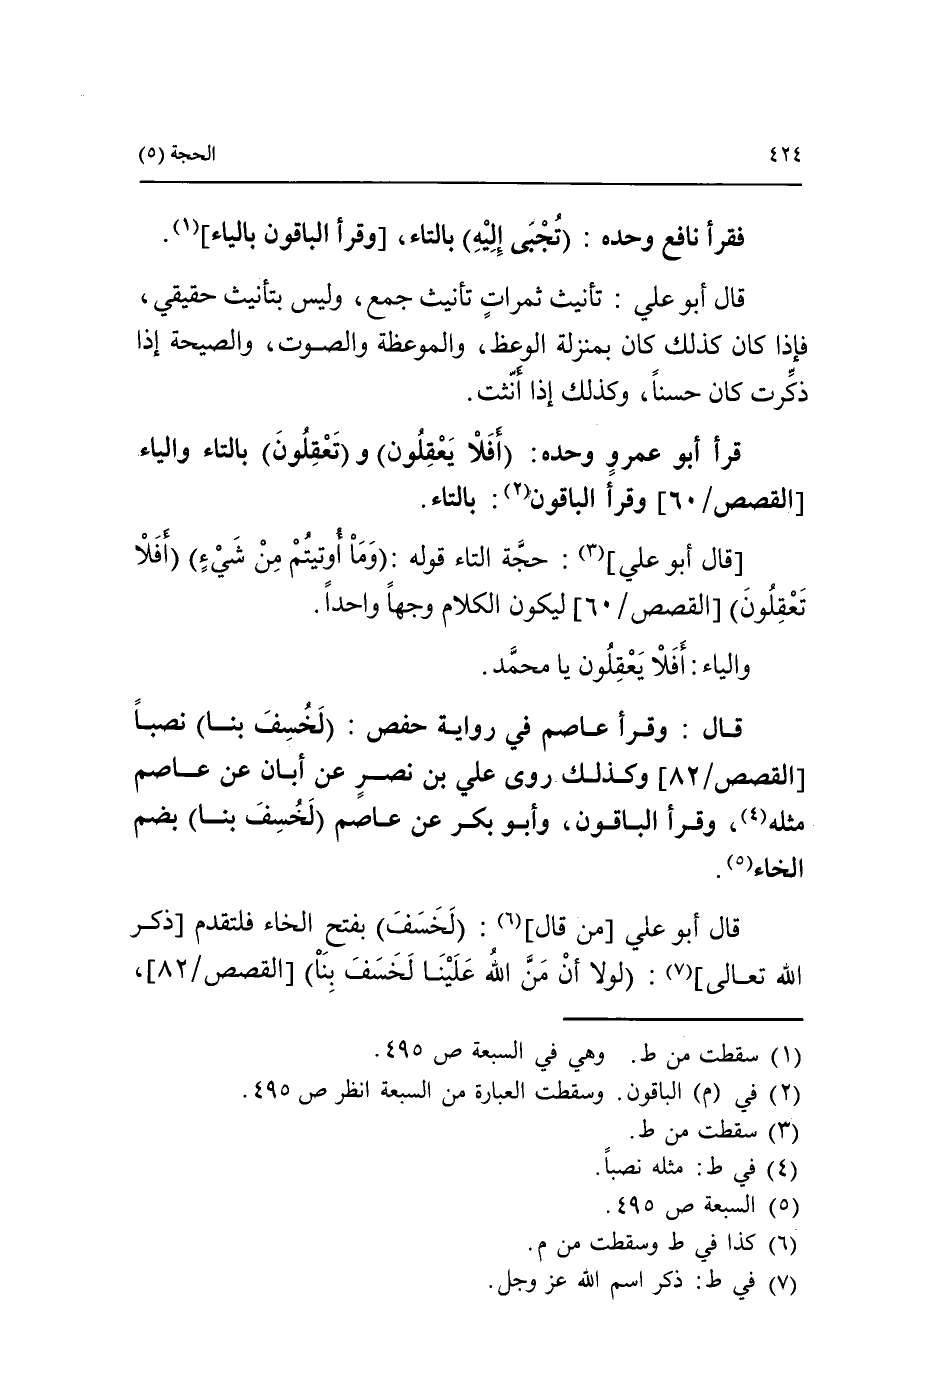 ٤٢٤
الحجة (٥)
فقرأ نافع وحده : (تُجْبَى إِلَيْهِ) بالتاء، [وقرأ الباقون بالياء](١).
قال أبو علي : تأنيث ثمراتٍ تأنيث جمع، وليس بتأنيث حقيقي،
فإذا كان كذلك كان بمنزلة الوعظ، والموعظة والصوت، والصيحة إذا
ذكِّرت كان حسناً، وكذلك إذا أُنّثت.
قرأ أبو عمروٍ وحده: (أَفَلْا يَعْقِلُون) و (تَعْقِلُونَ) بالتاء والياء
[القصص/٦٠] وقرأ الباقون(٢): بالتاء.
[قال أبو علي](٣) : حجَّة التاء قوله :(وَمَاْ أُوتيتُمْ مِنْ شَيْءٍ) (أَفَلْا
تَعْقِلُونَ) [القصص/٦٠] ليكون الكلام وجهاً واحداً.
والياء: أَفَلْا يَعْقِلُون يا محمَّد.
قال : وقرأ عاصم في رواية حفص : (لَخُسِفَ بنا) نصباً
[القصص/٨٢] وكذلك روى علي بن نصرٍ عن أبان عن عاصم
مثله(٤)، وقرأ الباقون، وأبو بكر عن عاصم (لَخُسِفَ بنا) بضم
الخاء(٥).
قال أبو علي [من قال](٦) : (لَخَسَفَ) بفتح الخاء فلتقدم [ذكر
الله تعالى](٧) : (لولا أنْ مَنَّ اللهُ عَلَيْنَا لَخَسَفَ بِنَاْ) [القصص/٨٢]،
(١) سقطت من ط. وهي في السبعة ص ٤٩٥.
(٢) في (م) الباقون. وسقطت العبارة من السبعة انظر ص ٤٩٥.
(٣) سقطت من ط.
(٤) في ط: مثله نصباً.
(٥) السبعة ص ٤٩٥.
(٦) كذا في ط وسقطت من م.
(٧) في ط: ذكر اسم الله عز وجل.